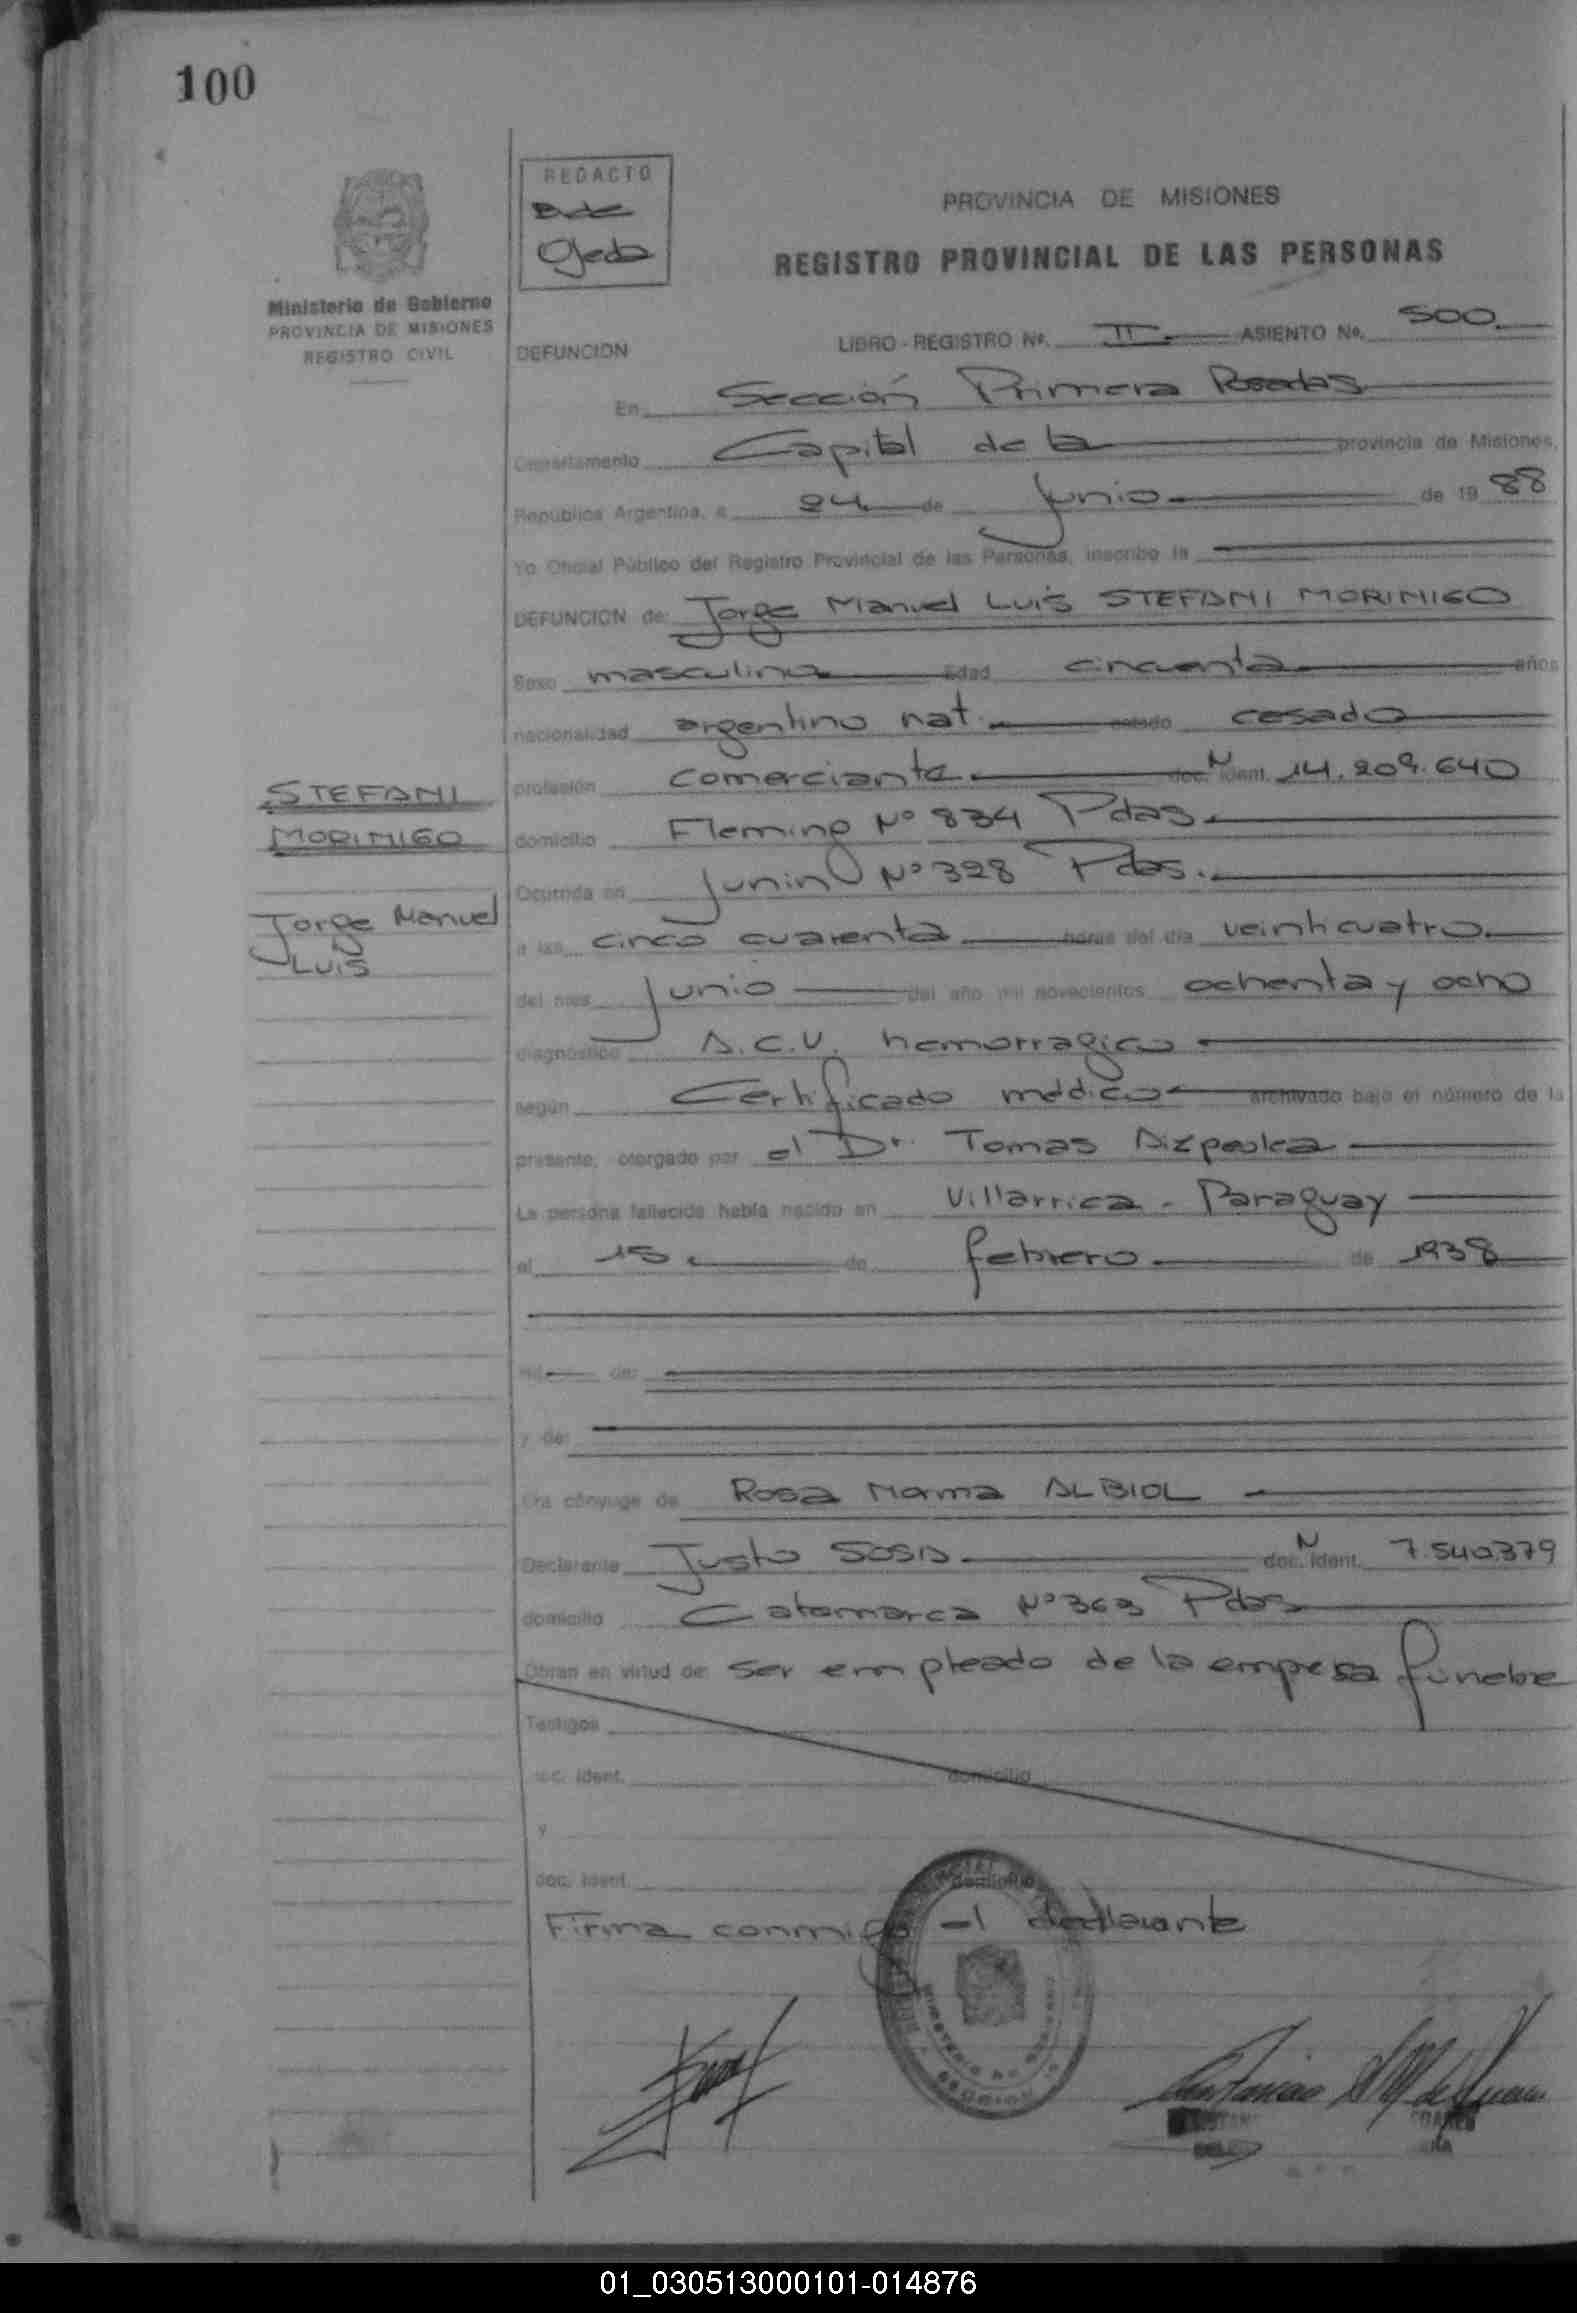 100
REDACTO
Ojeda
PROVINCIA DE MISIONES
REGISTRO PROVINCIAL DE LAS PERSONAS
Ministerio de Gobierno
PROVINCIA DE MISIONES
REGISTRO CIVIL
DEFUNCION
LIBRO - REGISTRO Nº. II ASIENTO No. 500
En Sección Primera Posadas
Departamento Capital de la provincia de Misiones,
República Argentina, a 24 de Junio de 1988
Yo Oficial Público del Registro Provincial de las Personas, inscribo la
DEFUNCION de: Jorge Manuel Luis STEFANI MORINIGO
Sexo masculino Edad cincuenta años
nacionalidad argentino nat. estado casado
profesión comerciante doc. N ident. 14.209.640
domicilio Fleming Nº 834 Pdas.
Ocurrida en Junin Nº 328 Pdas.
a las cinco cuarenta horas del día veinticuatro
del mes Junio del año mil novecientos ochenta y ocho
diagnóstico A.C.V. hemorragico
según Certificado médico archivado bajo el número de la
presente, otorgado por el Dr. Tomas
La persona fallecida había nacido en Villarrica - Paraguay
el 15 de febrero de 1938
de:
y de:
Era cónyuge de Rosa Norma ALBIOL
Declarante Justo SOSA doc. N ident. 7.540.379
domicilio Catamarca Nº 363 Pdas
Obran en virtud de: ser empleado de la empresa fúnebre
Testigos
doc. ident. domicilio
y
doc. ident. domicilio
Firma conmigo el declarante
STEFANI
MORINIGO
Jorge Manuel
Luis
01_030513000101-014876